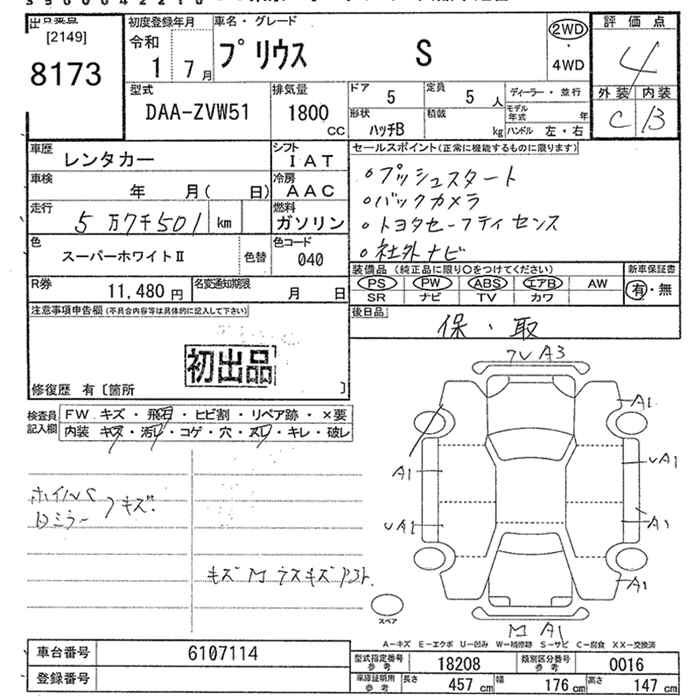 [2149]
8173
初度登録年月
令和
1 7月
車名・グレード
プリウス S
2WD
・
4WD
評価点
4
外装 内装
C B
型式
DAA-ZVW51
排気量
1800
CC
ドア 5
定員 5 人
形状 ハッチB
積載 kg
ディーラー・並行
モデル年式 年
ハンドル 左・右
車歴 レンタカー
シフト IAT
車検 年 月( 日)
冷房 AAC
走行 5万7千501 km
燃料 ガソリン
色 スーパーホワイトⅡ
色替
色コード 040
R券 11,480 円
名変通知期限 月 日
セールスポイント(正常に機能するものに限ります)
○プッシュスタート
○バックカメラ
○トヨタセーフティセンス
○社外ナビ
装備品 (純正品に限り○をつけてください)
PS PW ABS エアB AW
SR ナビ TV カワ
新車保証書
有・無
後日品
保・取
注意事項申告欄(不具合内容等は具体的に記入して下さい)
初出品
修復歴 有〔箇所 〕
検査員記入欄
FW キズ・飛石・ヒビ割・リペア跡・×要
内装 キズ・汚レ・コゲ・穴・スレ・キレ・破レ
キズ
フV A3
A1
A1
UA1
UA1
A1
A1
A1
スペア
A-キズ E-エクボ U-凹み W-補修跡 S-サビ C-腐食 XX-交換済
車台番号 6107114
登録番号
型式指定番号参考 18208
類別区分番号参考 0016
車庫証明用参考 長さ 457 cm 幅 176 cm 高さ 147 cm